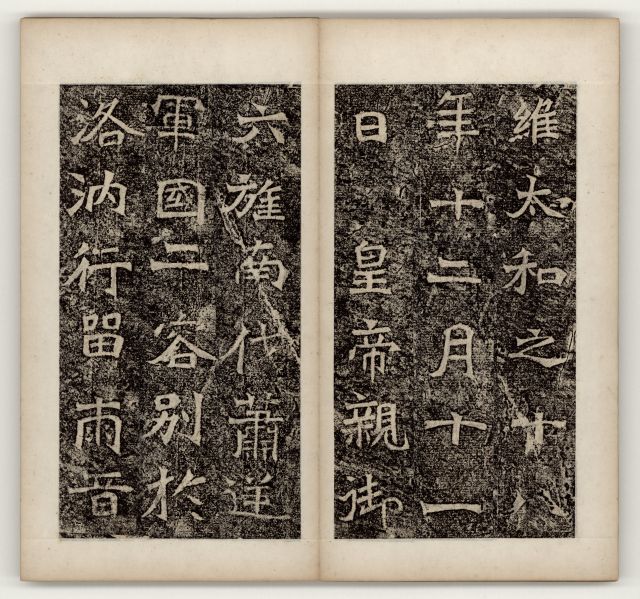 維太和之十八
年十二月十一
日 皇帝親御
六旌南伐蕭逆
軍國二容別於
洛汭行留兩音